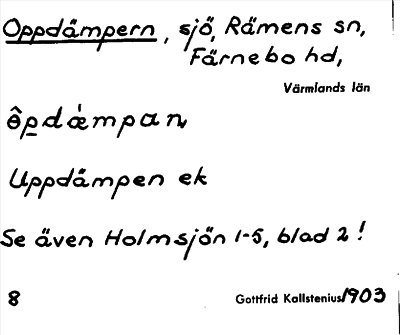 Oppdämpern, sjö, Rämens sn,
Färnebo hd,
Värmlands län
ôpdæ̀mpan,
Uppdämpen ek
Se även Holmsjön 1-5, blad 2!
8 Gottfrid Kallstenius 1903